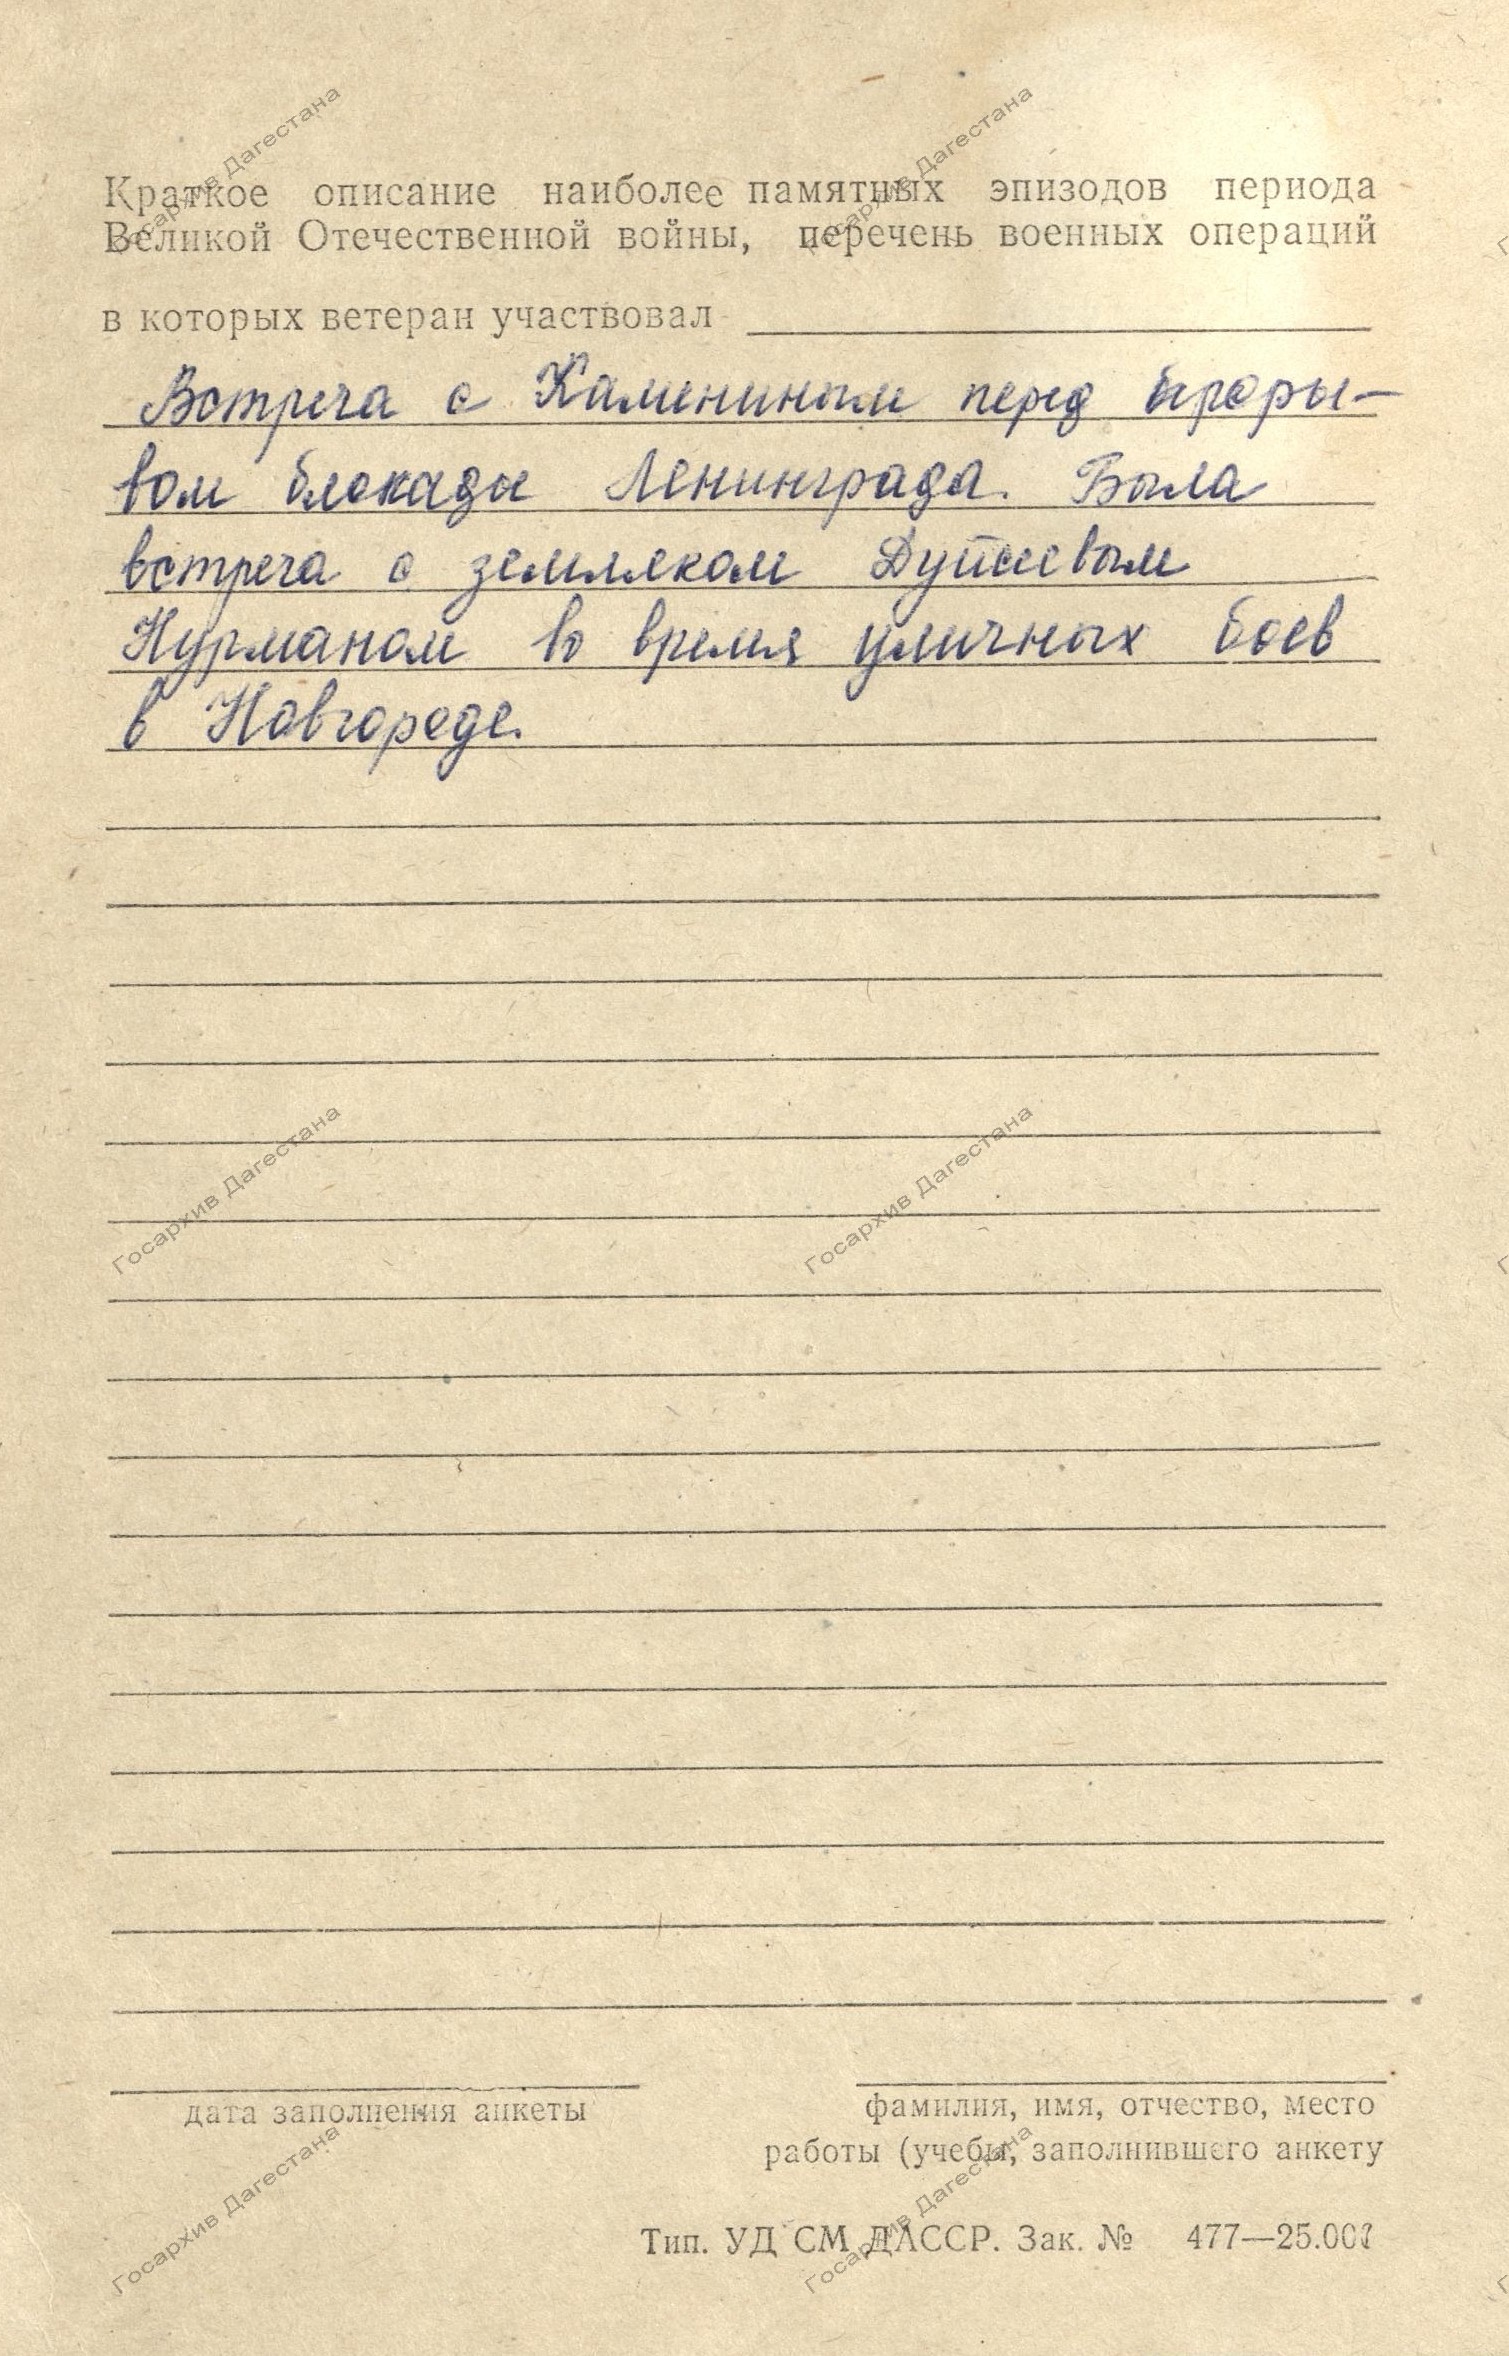 Краткое описание наиболее памятных эпизодов периода
Великой Отечественной войны, перечень военных операций
в которых ветеран участвовал
Встреча с Камениным перед проры-
вом блокады Ленинграда. Была
встреча с земляком
Нурманом во время уличных боев
в Новгороде.
дата заполнения анкеты
фамилия, имя, отчество, место
работы (учебы, заполнившего анкету
Тип. УД СМ ДАССР. Зак. № 477—25.000
Госархив Дагестана
Госархив Дагестана
Госархив Дагестана
Госархив Дагестана
Госархив Дагестана
Госархив Дагестана